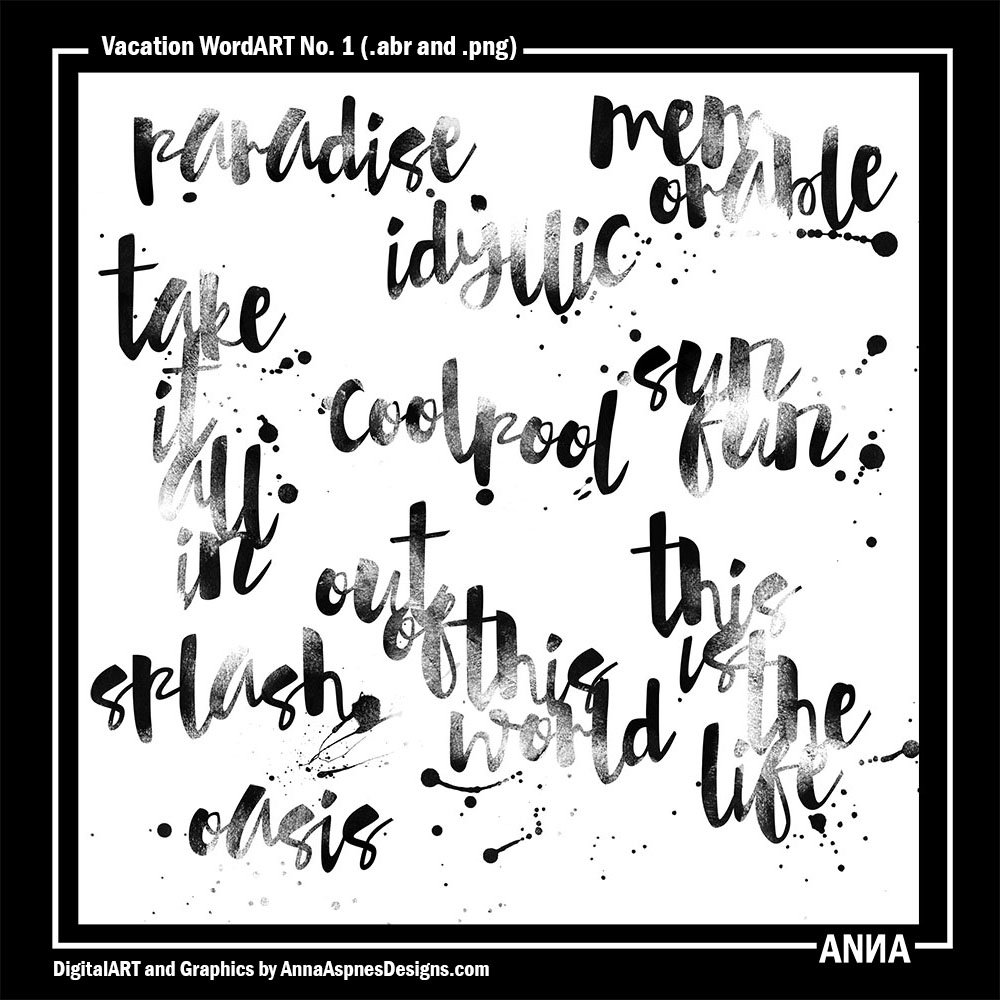 Vacation WordART No. 1 (.abr and .png)
paradise
mem
orable
idyllic
take
it
all
in
coolpool
sun
fun
out
of this
world
this
is the
life
splash
oasis
ANИA
DigitalART and Graphics by AnnaAspnesDesigns.com